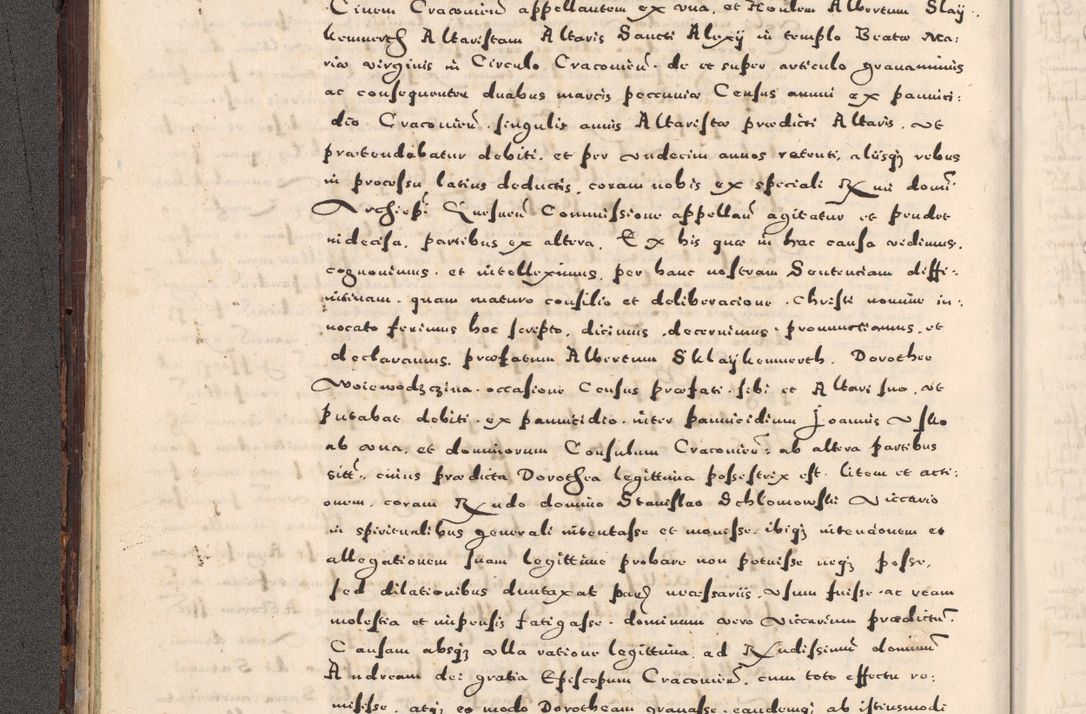 Civem Cracovien̄ appellantem ex una, et Honlem Albertum Slay:
kemmerth Altaristam Altaris Sancti Alexij in templo Beatæ Ma:
riæ virginis in Circulo Cracovien̄. de et super articulo gravaminis
ac consequenter duabus marcis peccuniæ Census annui ex pannici:
dio Cracovien̄. singulis annis Altaristæ prædicti Altaris, ut
prætendebatur debiti, et per undecim annos retenti, alijsqꝫ rebus
in processu latius deductis, coram nobis ex speciali Rx mi domī
Archiepī Gnesnen̄ Commissione appellan̄ agitatur et pendet
indecisa, partibus ex altera, Ex his quæ in hac causa vidimus,
cognovimus, et intelleximus, per hanc nostram Sententiam diffi:
nitivam, quam maturo consilio et deliberacione, Christi nomine in:
vocato ferimus hoc scripto, dicimus, decernimus, pronunctiamus, et
declaramus, præfatum Albertum Sklaykemmerth, Dorothee
Woiewodzczina occasione Census præfati, sibi et Altari suo, ut
putabat debiti, ex pannicidio, inter pannicidium Joannis Usko
ab una, et dominorum Consulum Cracovien̄: ab altera partibus
sitt̄, cuius prædicta Dorothea legittima possestrix est, litem et acti:
onem, coram Rx ndo domino Stanislao Schlomowski Viccario
in spiritualibus generali intentasse et movisse, ibiqꝫ intencionem et
allegationem suam legittime probare non potuisse neqꝫ posse,
sed dilationibus duntaxat parꝫ necessariis, usum fuisse, ac ream
molestia et impensis fatigasse, dominum vero Viccarium prædictum̄
Causam absqꝫ ulla ratione legittima, ad Rx ndissimum̄ dominum̄
Andream dei gratia Episcopum Cracovien̄, cum toto effectu re:
misisse, atqꝫ eo modo Dorotheam gravasse, eandemqꝫ ab istiusmodi